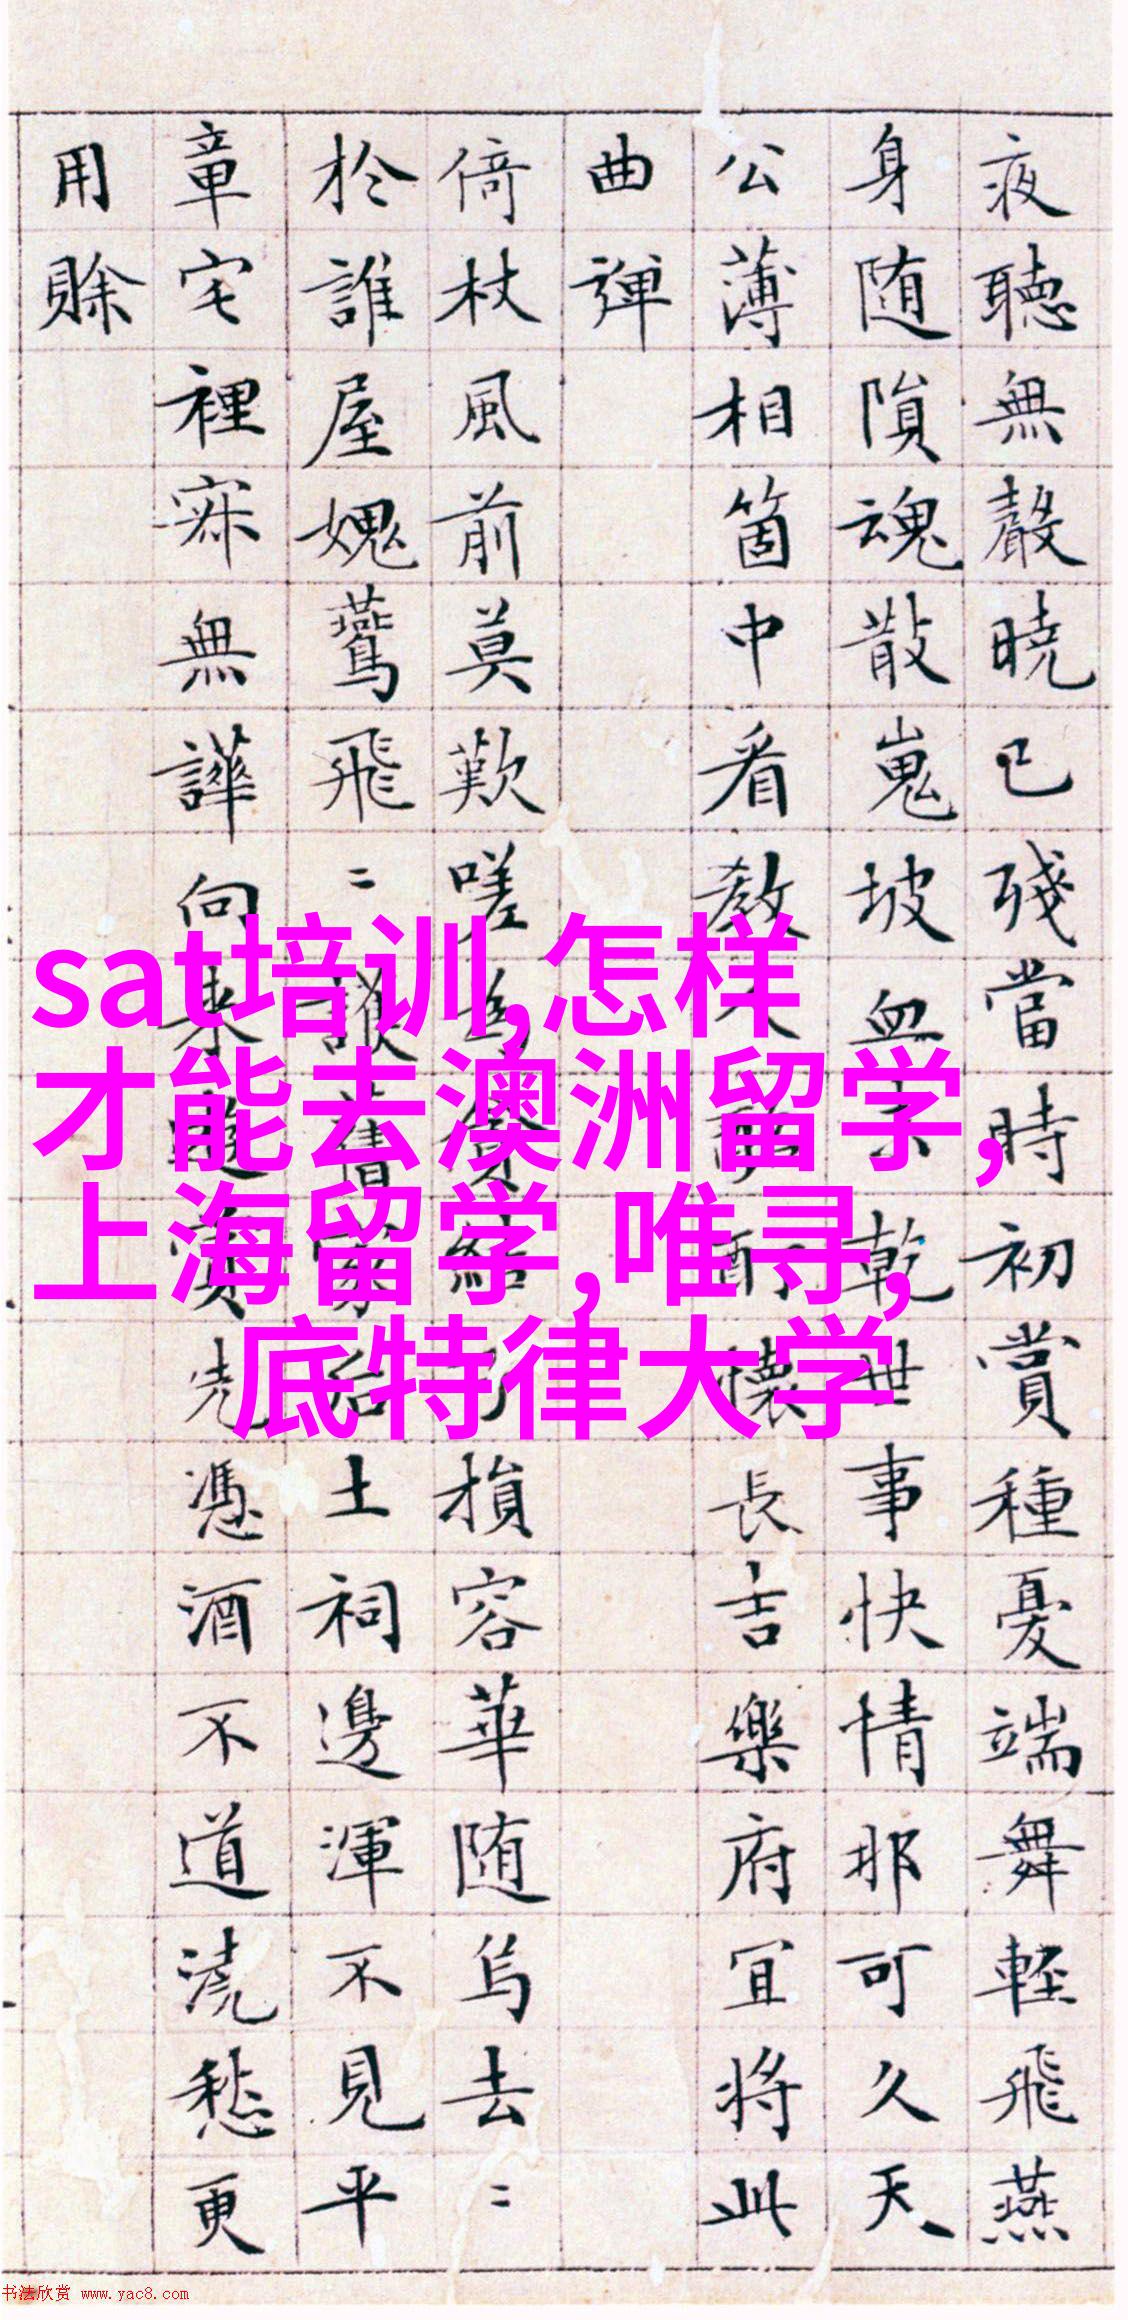 夜聴無聲曉已殘當時初賞種憂端舞輕飛燕
身随隕魂散嵬坡血未乾世事快情那可久天
公薄相箇中看教人懷長吉樂府宜将此
曲彈
倚杖風前莫歎嗟為貪結子損容華随烏去〻
於誰屋媿鷰飛〻護舊家后土祠邊渾不見平
章宅裡寂無譁向來雖賞先憑酒不道澆愁更
用賒
sat培训,怎样
才能去澳洲留学,
上海留学,唯寻,
底特律大学
书法欣赏 www.yac8.com